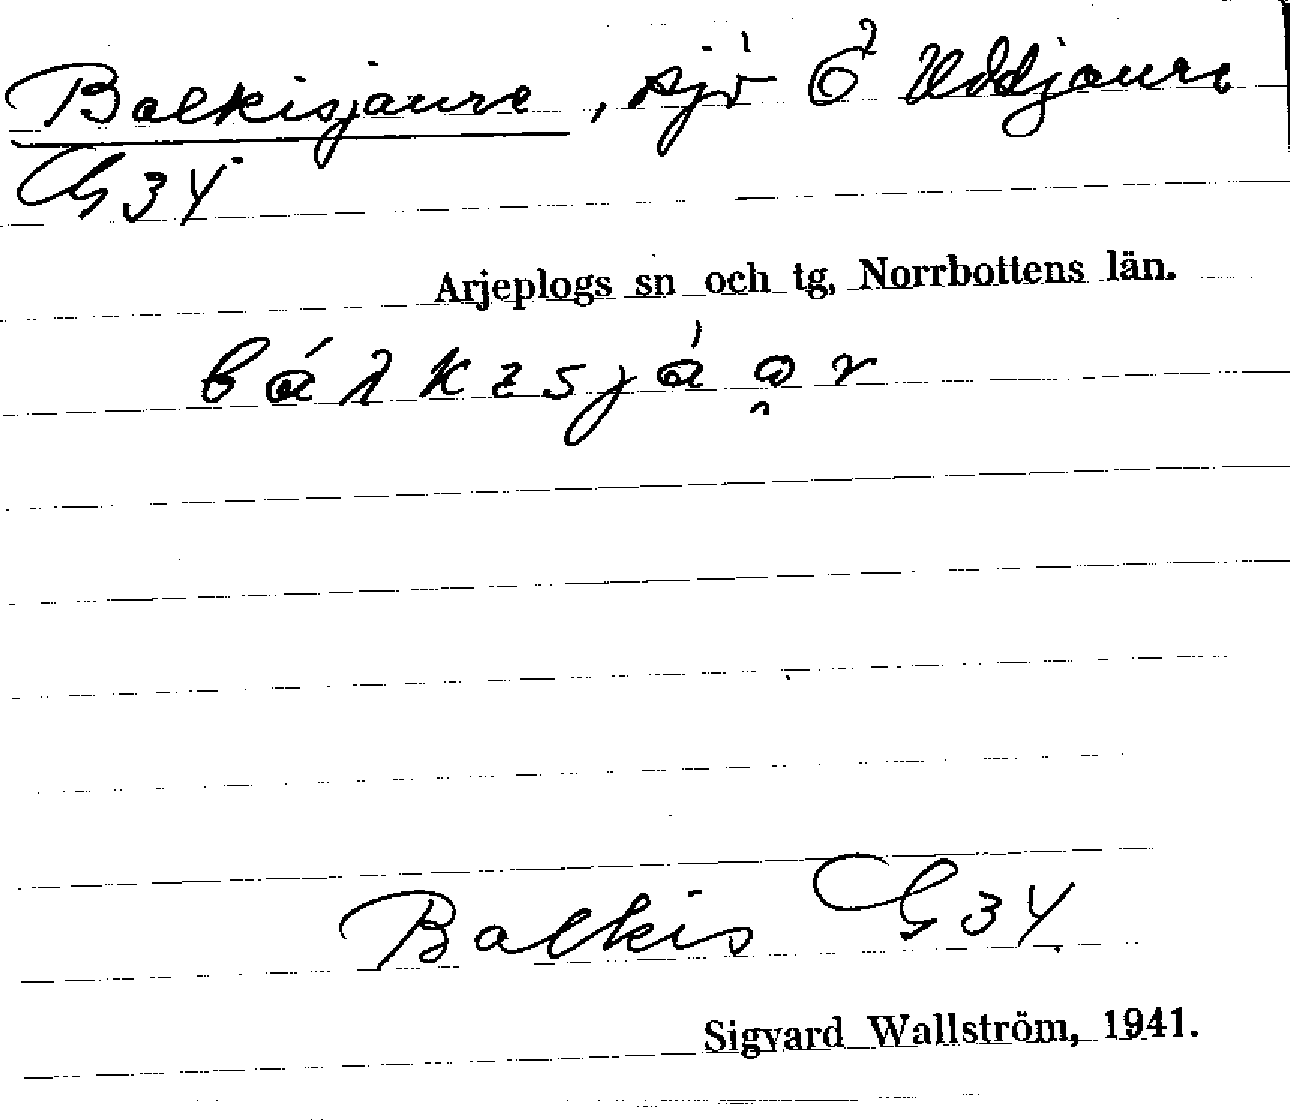 Balkisjaure, sjö Ö Uddjaure
G34
Arjeplogs sn och tg, Norrbottens län.
Balkis G34
Sigvard Wallström, 1941.